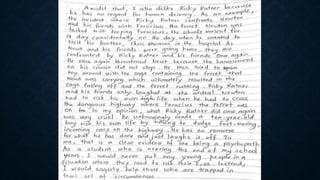 Amidst that, I also dislike Ricky Ratner because
he has no regard for human decency. As an example,
the incident where Ricky Ratner confronts Newton
and his friends with Ferocious the ferret. Newton was
tasked with keeping Ferocious, the school's mascot for
a day coincidentally on the day when he wanted to
visit his brother, Chris Newman in the hospital. As
Newt and his friends were going home, they are
confronted by Ricky Ratner and his friends once again.
He once again threatened Newt because the harassment
on his cousin did not stop. He then tried to
toy around with the cage containing the ferret that
Newt was carrying which ultimately resulted in the
cage falling off and the ferret running. Ricky Ratner
and his friends only laughed at the ordeal. Newton
had to risk his own life when he had to cross
the dangerous highway where Ferocious the ferret was
on to. In my opinion, what Ricky Ratner did once again
was very cruel. He unknowingly made a ten-year-old
boy risk his own life by having to dodge fast-moving,
incoming cars at the highway. He has no remorse
for what he has done and just laughs it off. To
me, that is a clear evidence of him being a psychopath.
As a student who is nearing the end of my school
years, I would never put any young people in a
situation where they need to risk their lives. Instead,
I would eagerly help those who are trapped in
that set of circumstances.